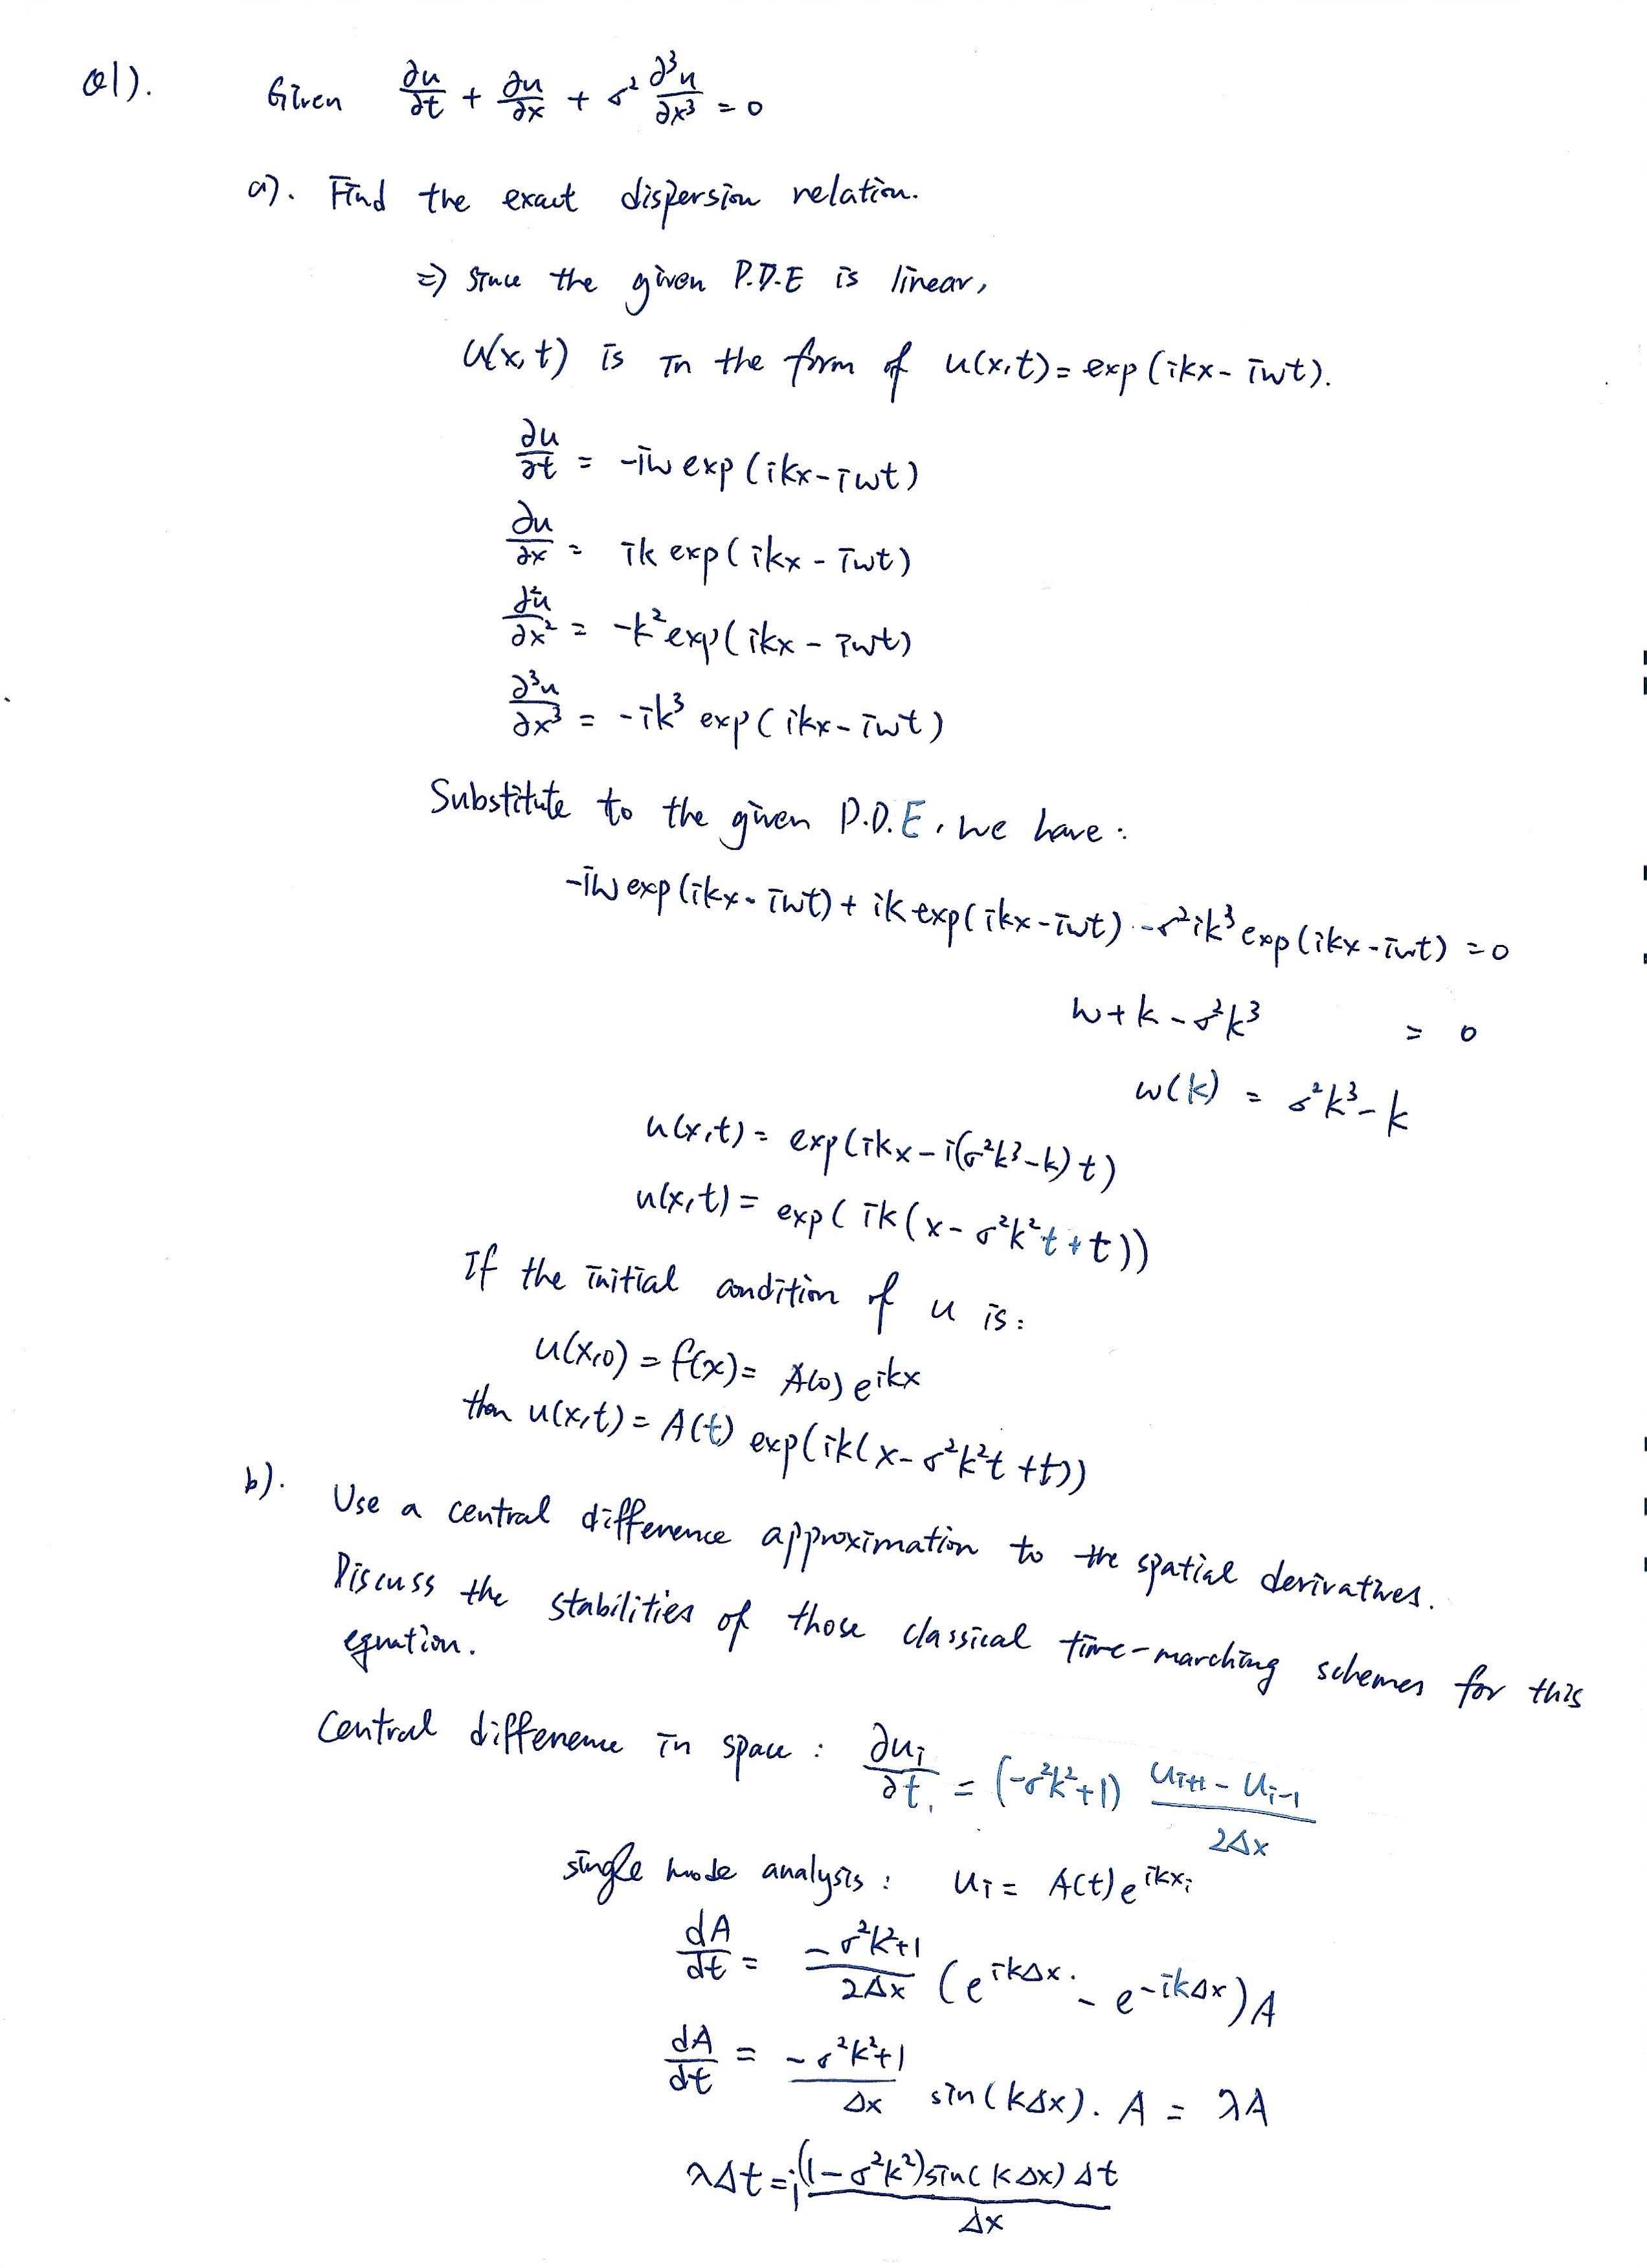 Q1). Given ∂u/∂t + ∂u/∂x + σ² ∂³u/∂x³ = 0
a). Find the exact dispersion relation.
⇒ Since the given P.D.E is linear,
u(x,t) is in the form of u(x,t) = exp(ikx - iwt).
∂u/∂t = -iw exp(ikx - iwt)
∂u/∂x = ik exp(ikx - iwt)
∂²u/∂x² = -k² exp(ikx - iwt)
∂³u/∂x³ = -ik³ exp(ikx - iwt)
Substitute to the given P.D.E, we have:
-iw exp(ikx - iwt) + ik exp(ikx - iwt) - σ²ik³ exp(ikx - iwt) = 0
w + k - σ²k³ = 0
w(k) = σ²k³ - k
u(x,t) = exp(ikx - i(σ²k³ - k)t)
u(x,t) = exp(ik(x - σ²k²t + t))
If the initial condition of u is:
u(x,0) = f(x) = A(0) e^{ikx}
then u(x,t) = A(t) exp(ik(x - σ²k²t + t))
b). Use a central difference approximation to the spatial derivatives.
Discuss the stabilities of those classical time-marching schemes for this
equation.
Central difference in space: ∂u_i/∂t = (-σ²k²+1) (u_{i+1} - u_{i-1})/2Δx
single mode analysis: u_i = A(t) e^{ikx_i}
dA/dt = (-σ²k²+1)/2Δx (e^{ikΔx} - e^{-ikΔx}) A
dA/dt = (-σ²k²+1)/Δx sin(kΔx). A = λA
λΔt = i (1-σ²k²) sin(kΔx) Δt/Δx